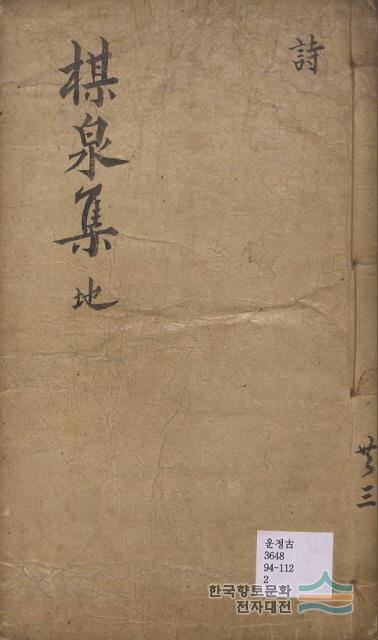 詩
楳泉集 地
共三
운정古
3648
94-112
2
한국향토문화
전자대전